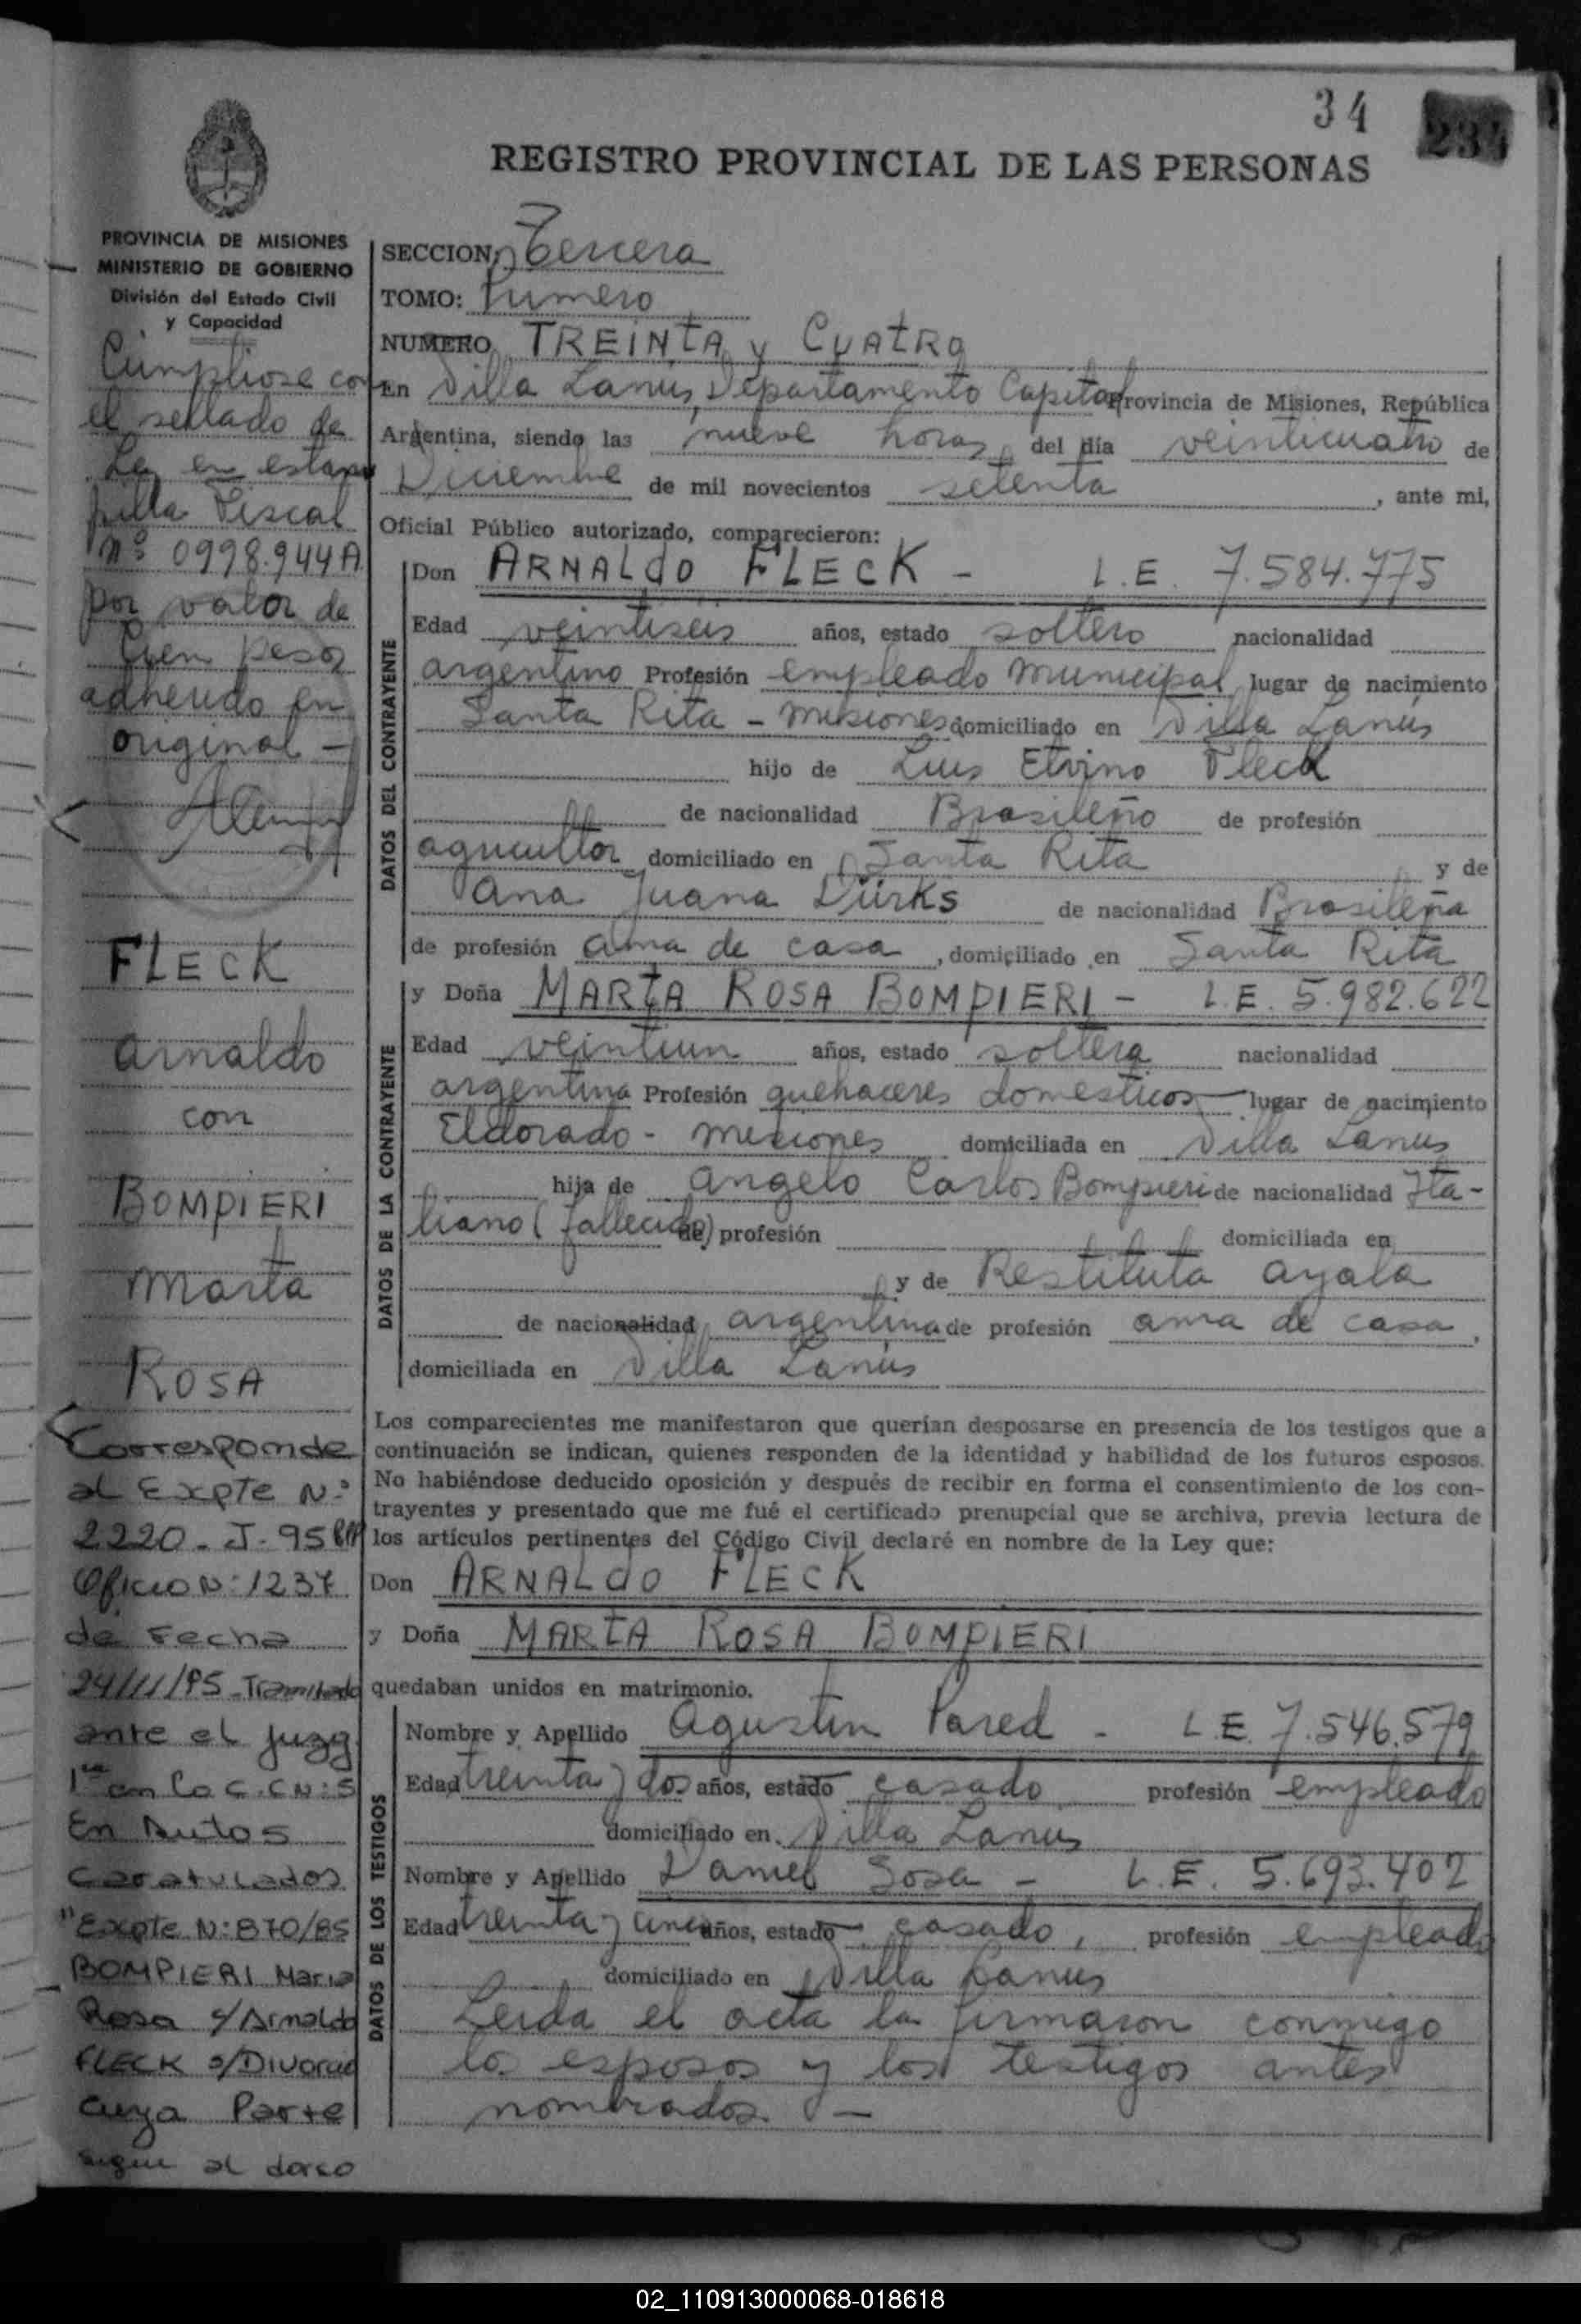 34
234
REGISTRO PROVINCIAL DE LAS PERSONAS
PROVINCIA DE MISIONES
MINISTERIO DE GOBIERNO
División del Estado Civil
y Capacidad
Cúmpliose con
el sellado de
Ley en estam
pilla Fiscal
Nº 0998.944A
por valor de
Cien pesos
adherido en
original -
FLECK
Arnaldo
con
BOMPIERI
Marta
ROSA
Corresponde
al Expte N:º
2220 - J - 95
Oficio N: 1237
de Fecha
24/11/95 - Tramitado
ante el Juzg
1ra en lo C. C N: 5
En Autos
Caratulados
"Expte N: 870/85
BOMPIERI Maria
Rosa c/ Arnaldo
FLECK s/ Divorcio
Cuya Parte
sigue al dorso
SECCION: Tercera
TOMO: Primero
NUMERO TREINTA y CUATRO
En Villa Lanús, Departamento Capital Provincia de Misiones, República
Argentina, siendo las nueve horas del día veinticuatro de
Diciembre de mil novecientos setenta, ante mi,
Oficial Público autorizado, comparecieron:
DATOS DEL CONTRAYENTE
Don ARNALdO FLECK - L.E. 7.584.775
Edad veintiseis años, estado soltero nacionalidad
argentino Profesión empleado municipal lugar de nacimiento
Santa Rita - Misiones domiciliado en Villa Lanús
hijo de Luis Etvino Fleck
de nacionalidad Brasileño de profesión
agricultor domiciliado en Santa Rita y de
Ana Juana Dürks de nacionalidad Brasileña
de profesión ama de casa, domiciliado en Santa Rita
DATOS DE LA CONTRAYENTE
y Doña MARTA ROSA BOMPIERI - L.E. 5.982.622
Edad veintiun años, estado soltera nacionalidad
argentina Profesión quehaceres domesticos lugar de nacimiento
Eldorado - misiones domiciliada en Villa Lanus
hija de Angelo Carlos Bompieri de nacionalidad Ita-
liano (fallecido) de profesión domiciliada en
y de Restituta Ayala
de nacionalidad argentina de profesión ama de casa,
domiciliada en Villa Lanús
Los comparecientes me manifestaron que querían desposarse en presencia de los testigos que a
continuación se indican, quienes responden de la identidad y habilidad de los futuros esposos.
No habiéndose deducido oposición y después de recibir en forma el consentimiento de los con-
trayentes y presentado que me fué el certificado prenupcial que se archiva, previa lectura de
los artículos pertinentes del Código Civil declaré en nombre de la Ley que:
Don ARNALdO FLECK
y Doña MARTA ROSA BOMPIERI
quedaban unidos en matrimonio.
DATOS DE LOS TESTIGOS
Nombre y Apellido Agustin Pared - L.E. 7.546.579
Edad treinta y dos años, estado casado profesión empleado
domiciliado en Villa Lanus
Nombre y Apellido Daniel Sosa - L.E. 5.693.402
Edad treinta y cinco años, estado casado, profesión empleado
domiciliado en Villa Lanus
Leida el acta la firmaron conmigo
los esposos y los testigos antes
nombrados. -
02_110913000068-018618